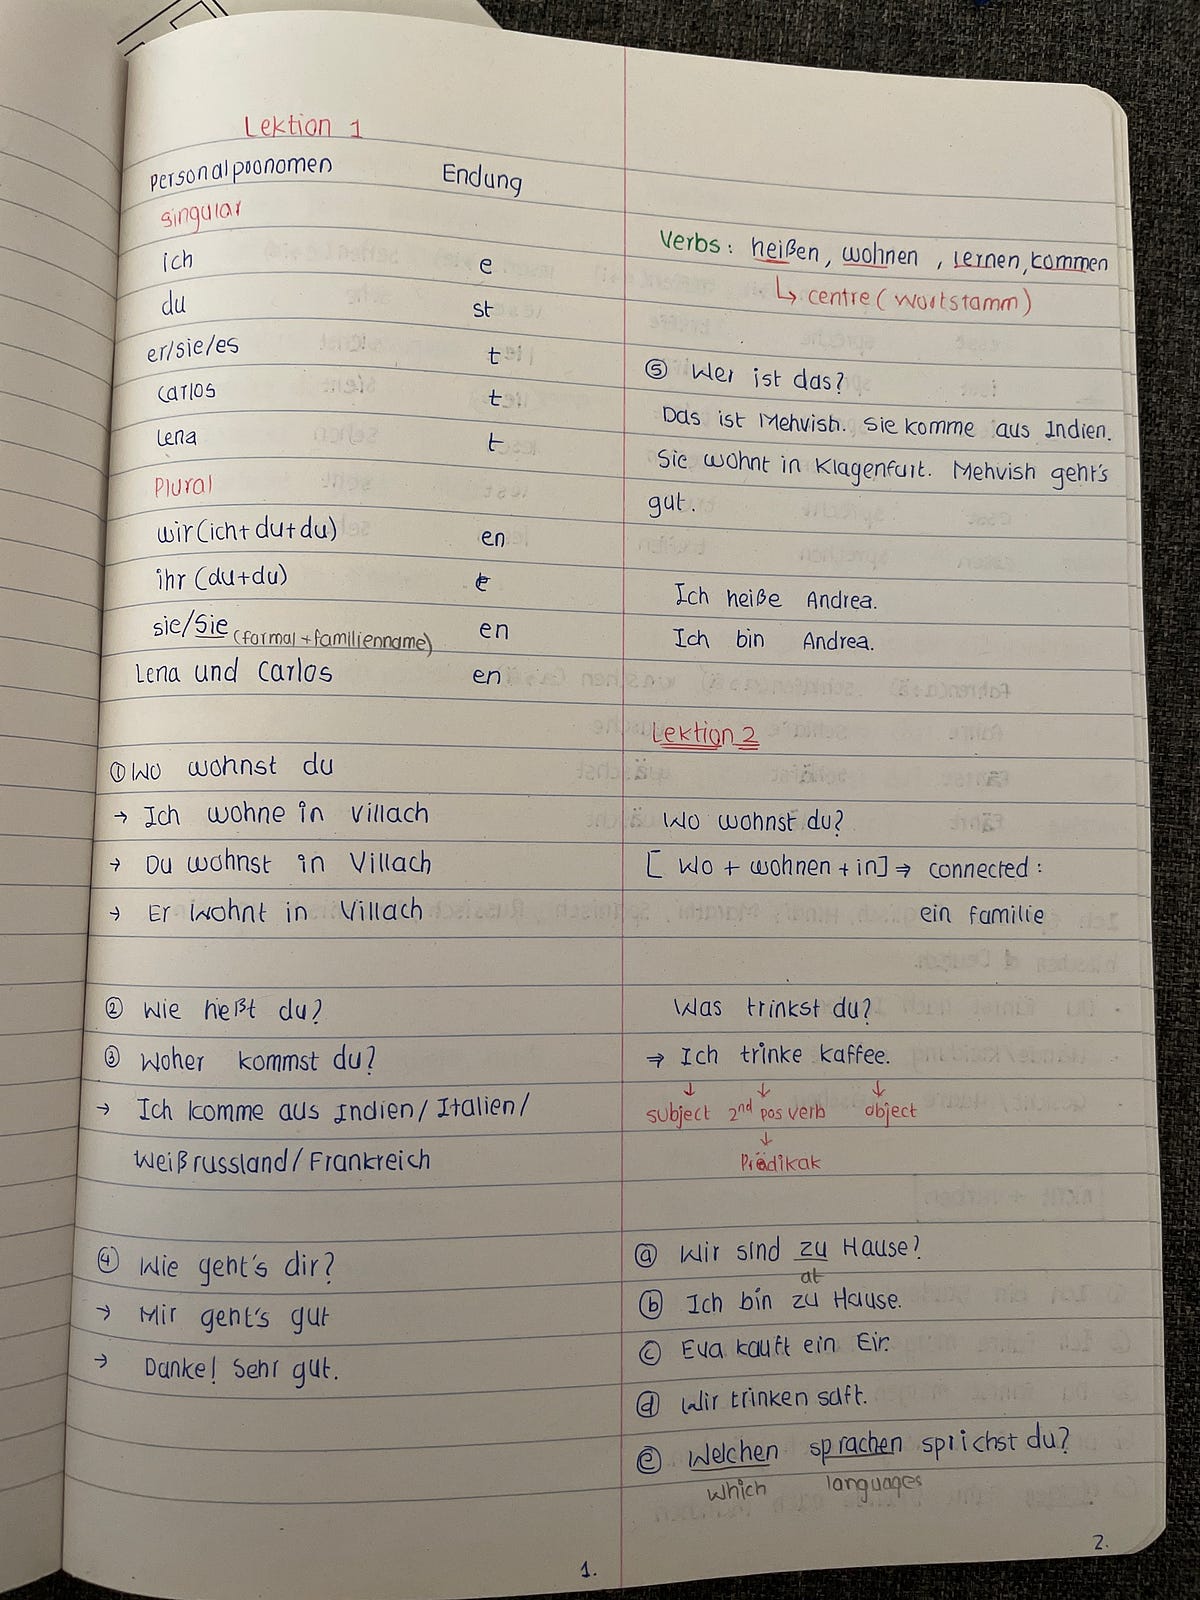 Lektion 1
Personalpronomen Endung
Singular
ich e
du st
er/sie/es t
Carlos t
Lena t
Plural
wir (ich+du+du) en
ihr (du+du) t
sie/Sie (formal + familienname) en
Lena und Carlos en
① Wo wohnst du
→ Ich wohne in Villach
→ Du wohnst in Villach
→ Er wohnt in Villach
② Wie heßt du?
③ Woher kommst du?
→ Ich komme aus Indien/ Italien/
Weißrussland/ Frankreich
④ Wie geht's dir?
→ Mir geht's gut
→ Danke! Sehr gut.
1.
Verbs: heißen, wohnen, lernen, kommen
↳ centre (Wortstamm)
⑤ Wer ist das?
Das ist Mehvish. Sie komme aus Indien.
Sie wohnt in Klagenfurt. Mehvish geht's
gut.
Ich heiße Andrea.
Ich bin Andrea.
Lektion 2
Wo wohnst du?
[ Wo + wohnen + in] ⇒ connected:
ein familie
Was trinkst du?
⇒ Ich trinke kaffee.
↓ ↓ ↓
subject 2nd pos verb object
↓
Prädikak
ⓐ Wir sind zu Hause?
at
ⓑ Ich bin zu Hause.
ⓒ Eva kauft ein Eir.
ⓓ Wir trinken saft.
ⓔ Welchen sprachen sprichst du?
which languages
2.